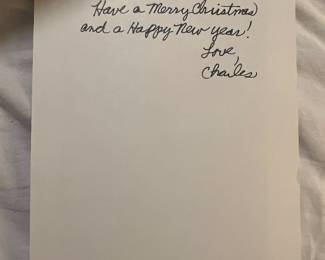 Have a Merry Christmas
and a Happy New year!
Love,
Charles